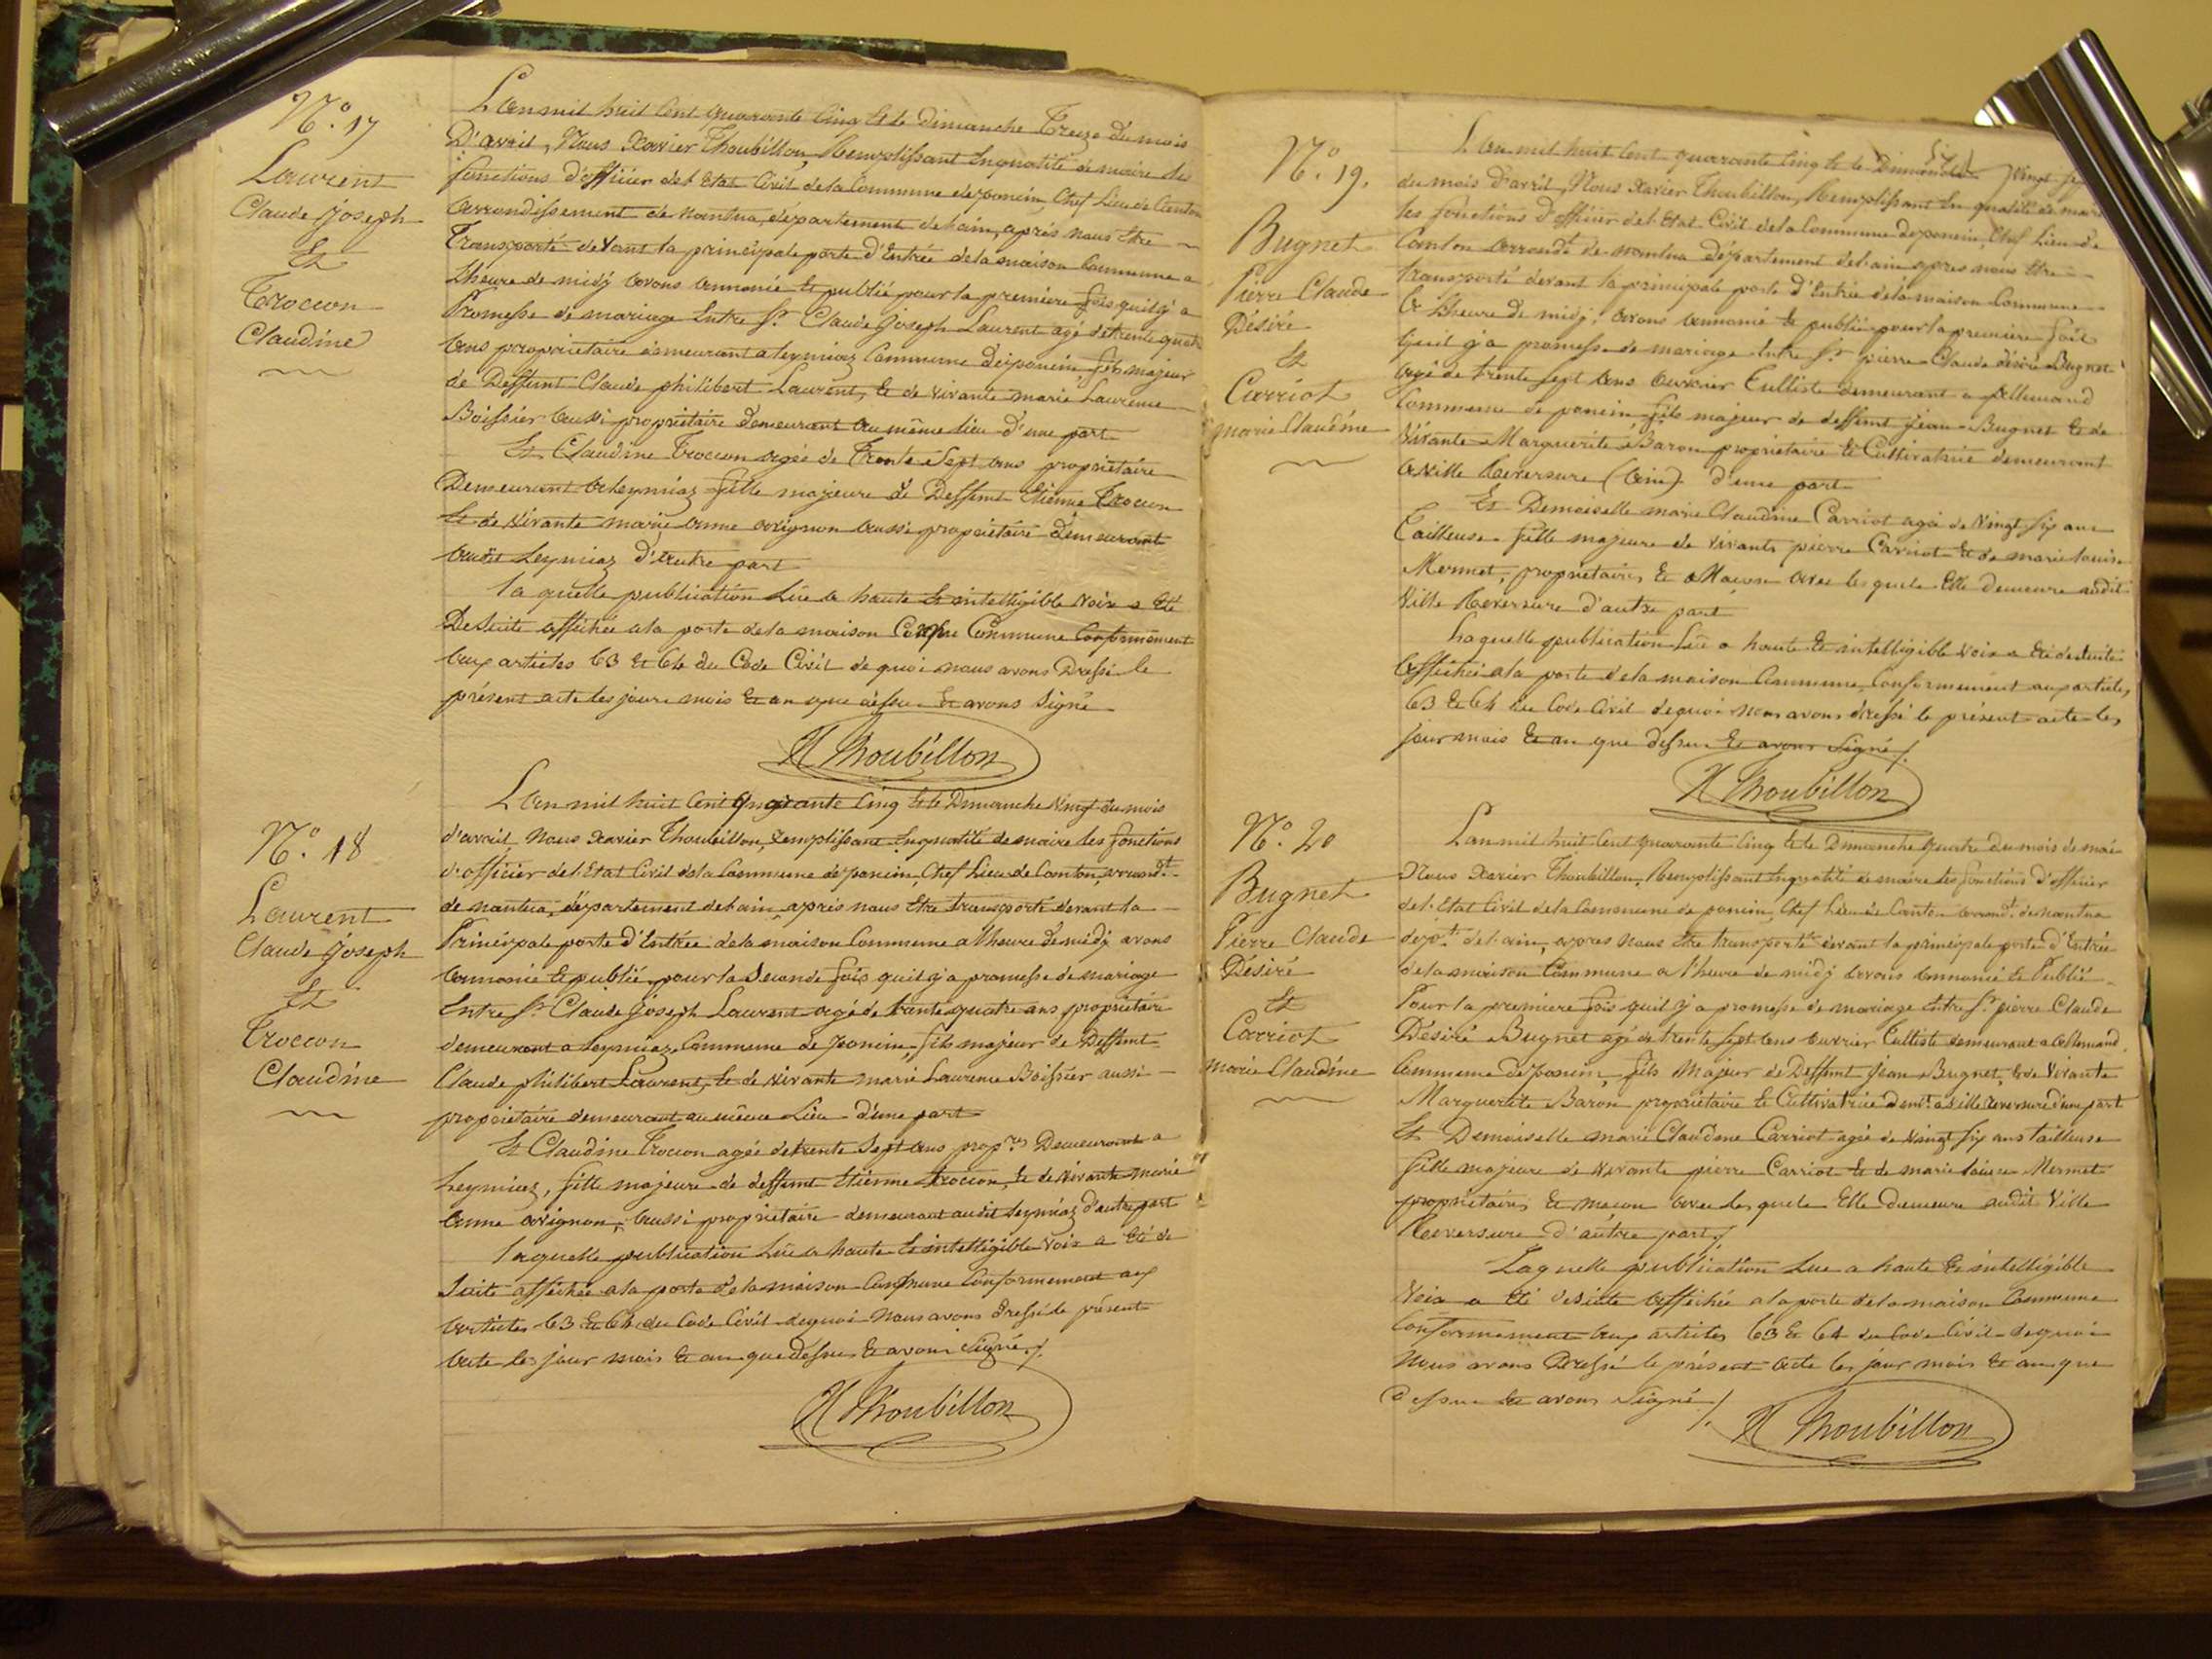 N.º 17
Laurent
Claude Joseph
Et
Trocon
Claudine
L'an mil huit Cent quarante Cinq Et le Dimanche Treize du mois
D'avril, Nous Xavier Thoubillon, Remplissant En qualité de maire les
fonctions d'officier de l'Etat Civil de la Commune de poncin, Chef Lieu de Canton
arrondissement de nantua, département de l'ain, après nous Etre
Transporté devant la principale porte d'Entrée de la maison Commune a
l'heure de midy avons annoncé Et publié pour la premiere fois qu'il y a
Promesse de mariage Entre Sr. Claude Joseph Laurent agé de trente quatre
ans propriétaire demeurant a Leymiaz Commune de poncin, fils majeur
de Deffunt Claude philibert Laurent, Et de vivante marie Laurence
Boissier aussi propriétaire demeurant au même lieu d'une part
Et Claudine Trocon agée de Trente Sept ans propriétaire
Demeurant a Leymiaz fille majeure de Deffunt Etienne Trocon
Et de vivante marie anne avignon aussi propriétaire demeurant
audit Leymiaz d'autre part
la quelle publication Lue a haute Et intelligible voix a Eté
De Suite affichée a la porte de la maison Commune Conformément
aux articles 63 Et 64 du Code Civil de quoi nous avons Dressé le
présent acte les jour mois Et an que dessus Et avons Signé
X Thoubillon
N.º 18
Laurent
Claude Joseph
Et
Trocon
Claudine
L'an mil huit Cent quarante Cinq Et le Dimanche Vingt du mois
d'avril, nous Xavier Thoubillon, remplissant En qualité de maire les fonctions
d'officier de l'Etat Civil de la Commune de poncin, Chef Lieu de Canton, arrondt.
de nantua, département de l'ain, après nous Etre transporté devant la
Principale porte d'Entrée de la maison Commune a l'heure de midy avons
annoncé Et publié pour la Seconde fois qu'il y a promesse de mariage
Entre Sr. Claude Joseph Laurent agé de trente quatre ans propriétaire
demeurant a Leymiaz Commune de Poncin, fils majeur de Deffunt
Claude philibert Laurent, Et de vivante marie Laurence Boissier aussi
propriétaire demeurant au même Lieu d'une part
Et Claudine Trocon agée de trente Sept ans propre. Demeurant a
Leymiaz, fille majeure de deffunt Etienne trocon, Et de vivante marie
anne avignon, aussi propriétaire demeurant audit Leymiaz d'autre part
laquelle publication Lue a haute Et intelligible voix a Eté de
Suite affichée a la porte de la maison Commune Conformement aux
articles 63 Et 64 du Code Civil de quoi nous avons dressé le présent
acte les jour mois Et an que dessus Et avons Signé ./.
X Thoubillon
N.º 19.
Bugnet
Pierre Claude
Désiré
Et
Carriot
marie Claudine
L'an mil huit Cent quarante Cinq Et le Dimanche Vingt
du mois d'avril, Nous Xavier Thoubillon, Remplissant En qualité de maire
les fonctions d'officier de l'Etat Civil de la Commune de poncin, Chef Lieu de
Canton arrondt. de nantua Département de l'ain après nous Etre
transporté devant la principale porte d'Entrée de la maison Commune
a l'heure de midy, avons annoncé Et publié pour la premiere fois
qu'il y a promesse de mariage Entre Sr. pierre Claude désiré Bugnet
agé de trente Sept ans ouvrier Tulliste demeurant a allemand
Commune de poncin fils majeur de deffunt Jean Bugnet Et de
vivante Marguerite Baron propriétaire Et Cultivatrice demeurant
a Ville Reversure (ain) d'une part
Et Demoiselle marie Claudine Carriot agée de Vingt Six ans
Tailleuse fille majeure de vivants pierre Carriot Et de marie louise
Mermet, propriétaires Et Macon avec lesquels Elle demeure audit
Ville Reversure d'autre part
Laquelle publication Lue a haute Et intelligible voix a Eté de Suite
affichée a la porte de la maison Commune, Conformement aux articles
63 Et 64 du Code Civil de quoi nous avons dressé le présent acte les
jour mois Et an que dessus Et avons Signé ./.
X Thoubillon
N.º 20
Bugnet
Pierre Claude
Désiré
Et
Carriot
marie Claudine
L'an mil huit Cent quarante Cinq Et le Dimanche quatre du mois de mai
Nous Xavier Thoubillon, Remplissant En qualité de maire les fonctions d'officier
de l'Etat Civil de la Commune de poncin, Chef Lieu de Canton arrondt. de nantua
dépt. de l'ain, après nous Etre transporté devant la principale porte d'Entrée
de la maison Commune a l'heure de midy avons annoncé Et Publié
Pour la premiere fois qu'il y a promesse de mariage Entre Sr. pierre Claude
Désiré Bugnet agé de trente Sept ans ouvrier Tulliste demeurant a allemand
Commune de poncin, fils Majeur de Deffunt Jean Bugnet, Et de vivante
Marguerite Baron propriétaire Et Cultivatrice demt. a Ville Reversure d'une part
Et Demoiselle marie Claudine Carriot agée de Vingt Six ans tailleuse
fille majeure de vivants pierre Carriot Et de marie Louise Mermet
propriétaires Et macon avec lesquels Elle demeure audit Ville
Reversure d'autre part ./
Laquelle publication Lue a haute Et intelligible
voix a Eté de Suite affichée a la porte de la maison Commune
Conformement aux articles 63 Et 64 du Code Civil de quoi
Nous avons Dressé le présent acte les jour mois Et an que
dessus Et avons Signé ./.
X Thoubillon